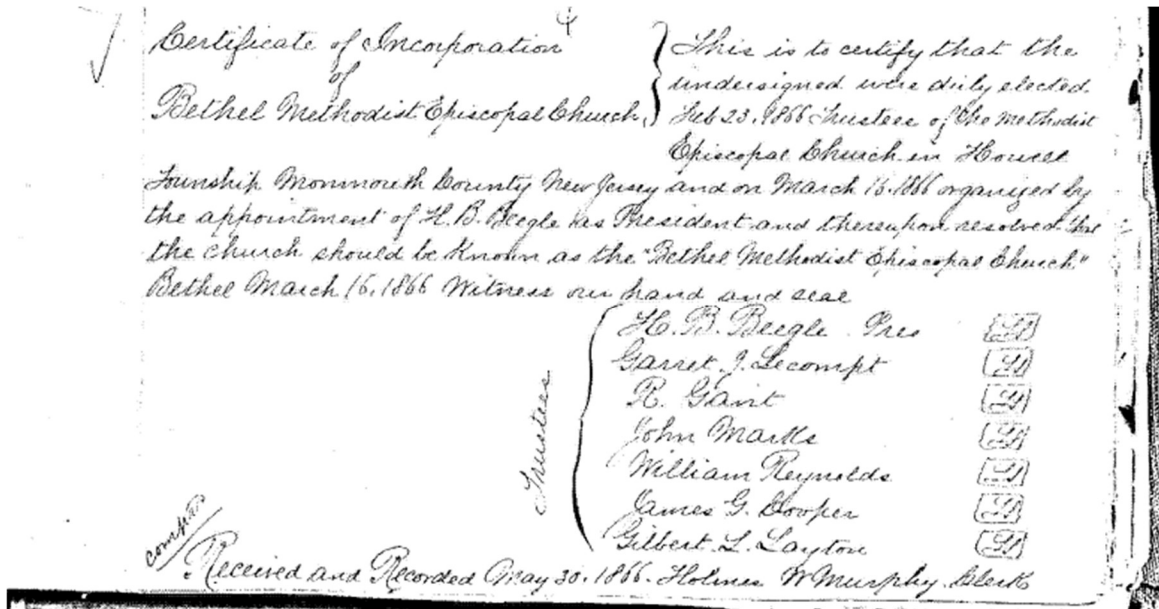 Certificate of Incorporation
of
Bethel Methodist Episcopal Church,
This is to certify that the
undersigned were duly elected
Feb 23. 1866 Trustees of the Methodist
Episcopal Church in Howell
Township Monmouth County New Jersey and on March 16. 1866 organized by
the appointment of H. B. Beegle as President and thereupon resolved that
the church should be known as the "Bethel Methodist Episcopal Church."
Bethel March 16. 1866 Witness our hand and seal
Trustees
H. B. Beegle Pres LS
Garret J. Lecompt LS
R. Gant LS
John Marks LS
William Reynolds LS
James G. Cooper LS
Gilbert L. Layton LS
Received and Recorded May 30. 1866. Holmes W Murphy Clerk